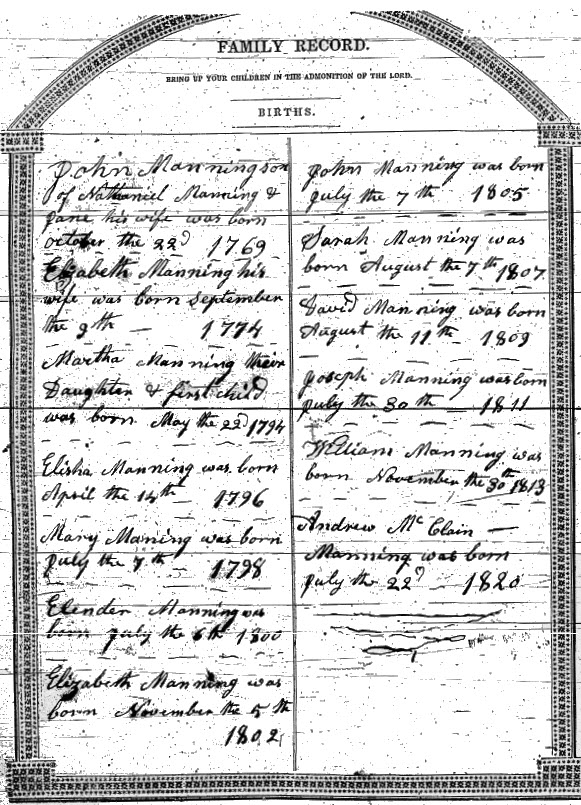 FAMILY RECORD.
BRING UP YOUR CHILDREN IN THE ADMONITION OF THE LORD.
BIRTHS.
John Manning son
of Nathaniel Manning &
Jane his wife was born
october the 22d 1769
Elizabeth Manning his
wife was born September
the 9th — 1774
Martha Manning their
Daughter & first child
was born May the 22d 1794
Elisha Manning was born
April the 14th 1796
Mary Manning was born
July the 7th — 1798
Elender Manning was
born July the 6th 1800
Elizabeth Manning was
born November the 5th
1802
John Manning was born
July the 7th 1805
Sarah Manning was
born August the 7th 1807
David Manning was born
August the 11th 1809
Joseph Manning was born
July the 30th — 1811
William Manning was
born November the 30th 1813
Andrew Mc Clain —
Manning was born
July the 22d — 1820